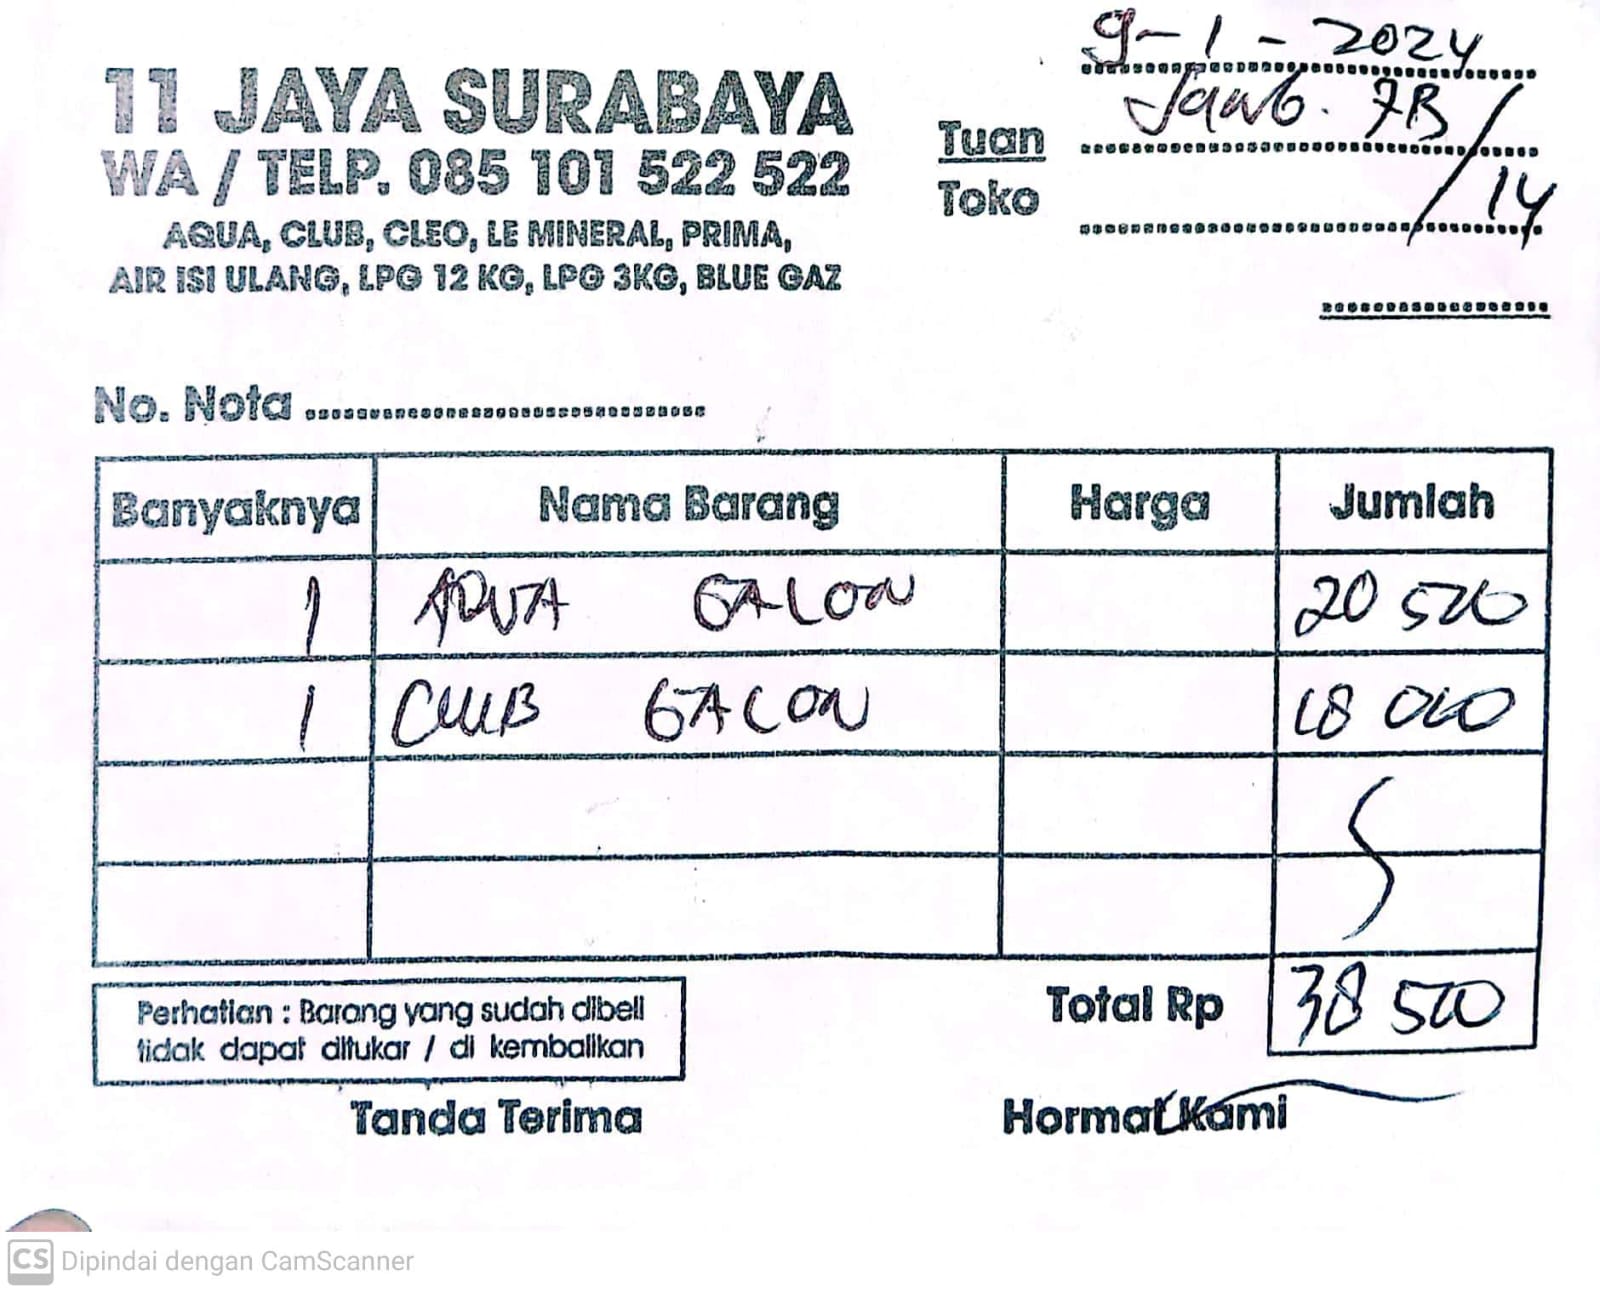 9-1-2024
11 JAYA SURABAYA
WA / TELP. 085 101 522 522
AQUA, CLUB, CLEO, LE MINERAL, PRIMA,
AIR ISI ULANG, LPG 12 KG, LPG 3KG, BLUE GAZ
Tuan 7B/14
Toko
No. Nota
Banyaknya Nama Barang Harga Jumlah
1 AQUA GALON 20 500
1 CLUB GALON 18 000
Total Rp 38 500
Perhatian : Barang yang sudah dibeli
tidak dapat ditukar / di kembalikan
Tanda Terima Hormat Kami
CS Dipindai dengan CamScanner